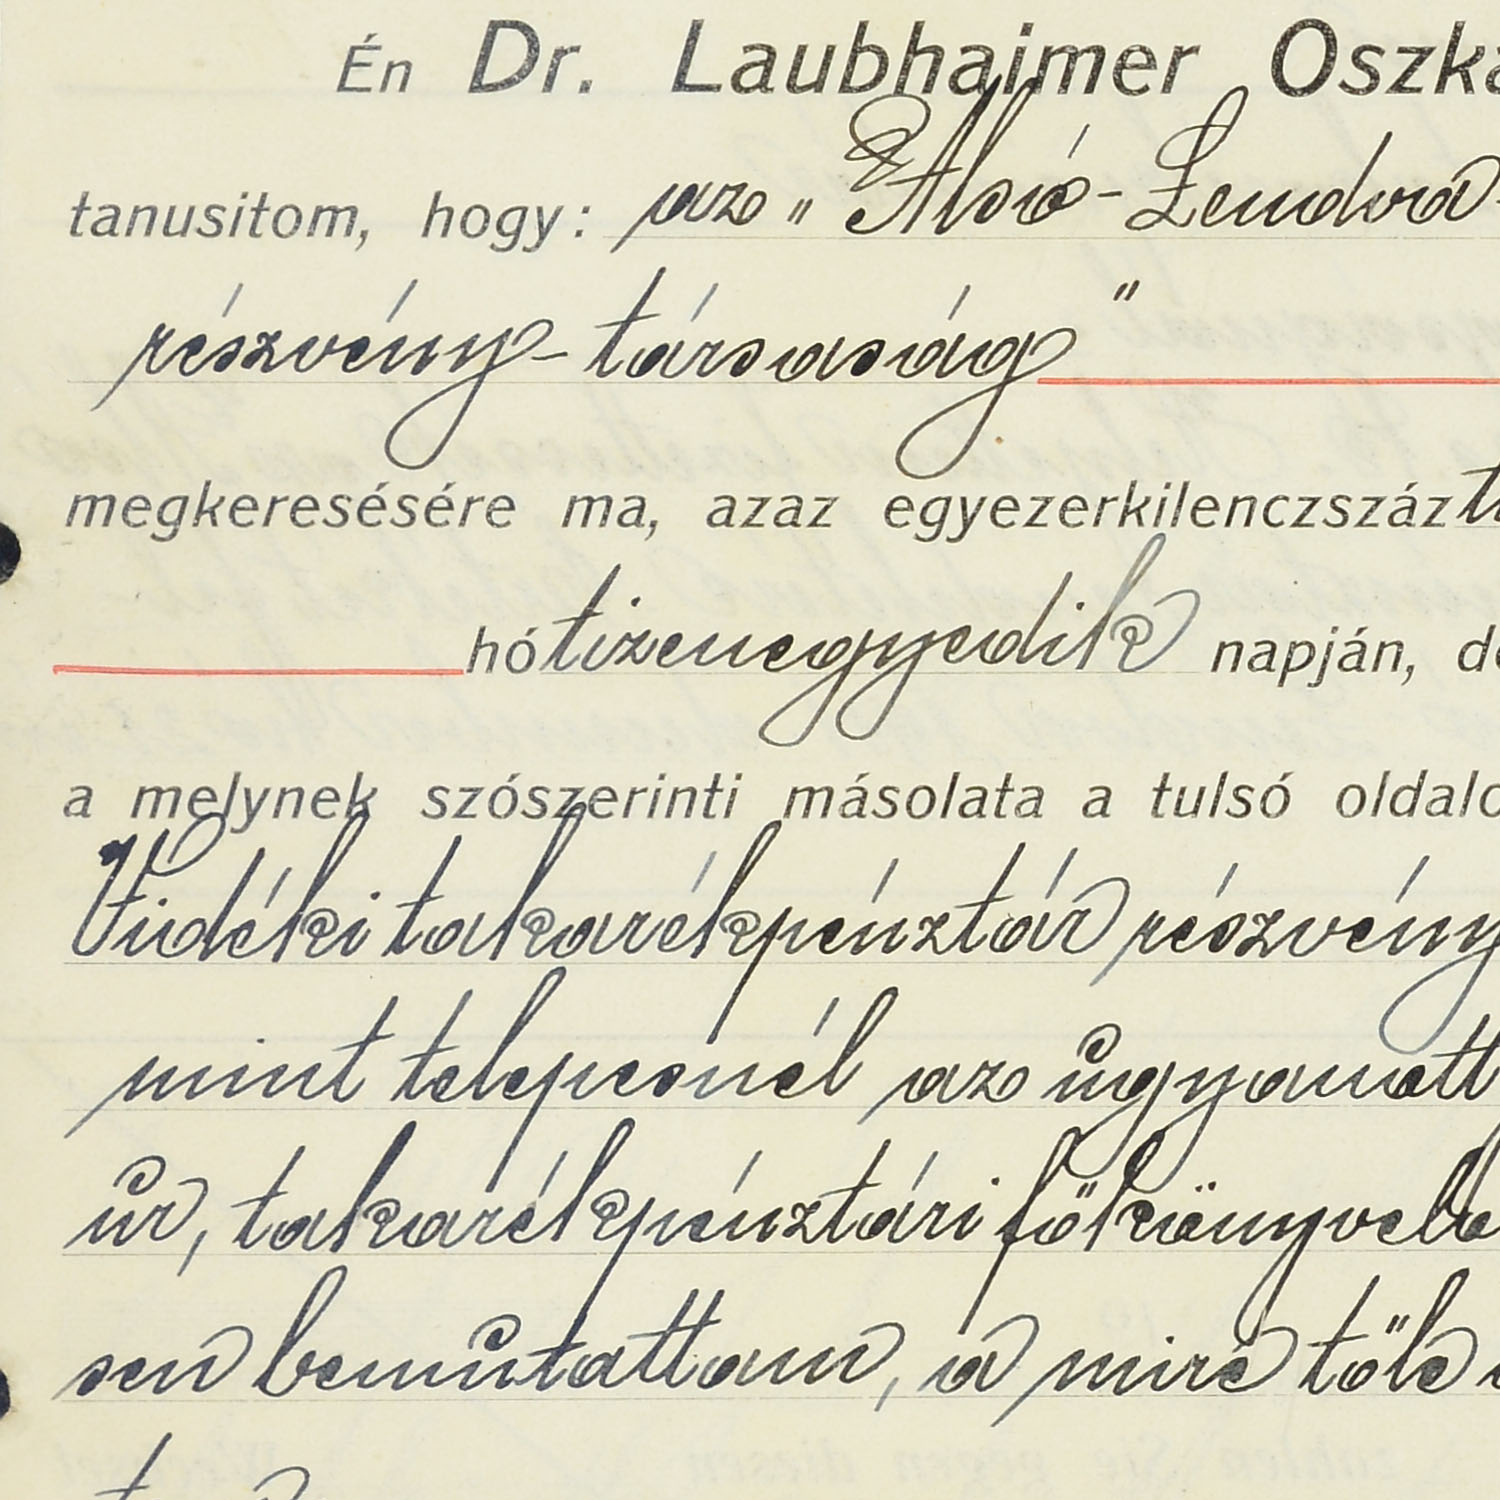 Én Dr. Laubhaimer Oszká
tanusitom, hogy: az „Alsó-Lendva-
részvény-társaság"
megkeresésére ma, azaz egyezerkilenczszáz
hó tizenegyedik napján, de
a melynek szószerinti másolata a tulsó oldalo
Vidéki takarékpénztár részvény
mint telepesnél az ugyanott
úr, takarékpénztári főkönyvelő
sen bemutattam, a mire tőle